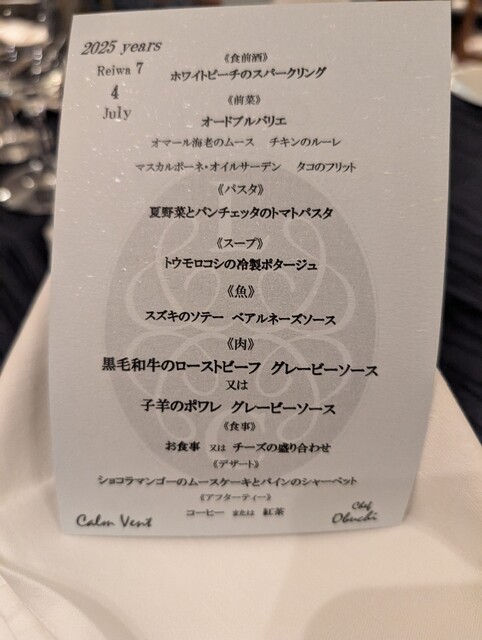 2025 years
Reiwa 7
4
July
《食前酒》
ホワイトピーチのスパークリング
《前菜》
オードブルバリエ
オマール海老のムース　チキンのルーレ
マスカルポーネ・オイルサーデン　タコのフリット
《パスタ》
夏野菜とパンチェッタのトマトパスタ
《スープ》
トウモロコシの冷製ポタージュ
《魚》
スズキのソテー　ベアルネーズソース
《肉》
黒毛和牛のローストビーフ　グレービーソース
又は
子羊のポワレ　グレービーソース
《食事》
お食事　又は　チーズの盛り合わせ
《デザート》
ショコラマンゴーのムースケーキとパインのシャーベット
《アフターティー》
コーヒー　または　紅茶
Calm Vent
Chef
Obuchi